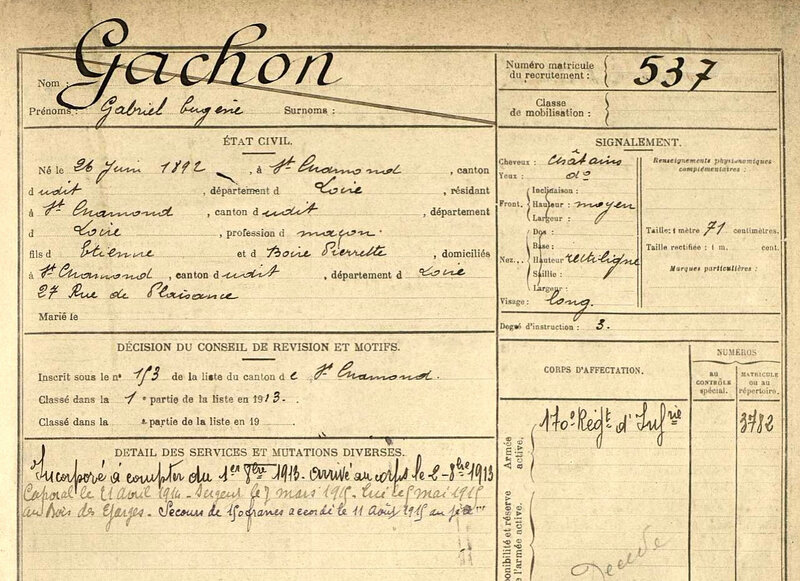 Nom : Gachon
Prénoms : Gabriel Eugène Surnoms :
Numéro matricule du recrutement : 537
Classe de mobilisation :
ÉTAT CIVIL.
Né le 26 Juin 1892, à St Chamond, canton
dudit, département d Loire, résidant
à St Chamond, canton dudit, département
d Loire, profession d maçon.
fils d Etienne et d Boire Pierrette, domiciliés
à St Chamond, canton dudit, département d Loire
27 Rue de Plaisance
Marié le
SIGNALEMENT.
Cheveux : châtains
Yeux : do
Front. Inclinaison :
Hauteur : moyen
Largeur :
Nez... Dos :
Base :
Hauteur rectiligne
Saillie :
Largeur :
Visage : long.
Renseignements physionomiques
complémentaires :
Taille : 1 mètre 71 centimètres.
Taille rectifiée : 1 m. cent.
Marques particulières :
Degré d'instruction : 3.
DÉCISION DU CONSEIL DE REVISION ET MOTIFS.
Inscrit sous le n° 153 de la liste du canton de St Chamond.
Classé dans la 1e partie de la liste en 1913.
Classé dans la e partie de la liste en 19
CORPS D'AFFECTATION.
NUMÉROS
AU CONTRÔLE spécial.
MATRICULE ou au répertoire.
Armée active.
170e Régt d'Infrie 3782
DETAIL DES SERVICES ET MUTATIONS DIVERSES.
Incorporé à compter du 1er 8bre 1913. arrivé au corps le 2-8bre 1913
Caporal le 21 Avril 1914 - Sergent le 7 mars 1915 - Tué le 5 mai 1915
au Bois des Eparges - Secours de 150 francs accordé le 11 Août 1915 au
ponibilité et réserve
e l'armée active.